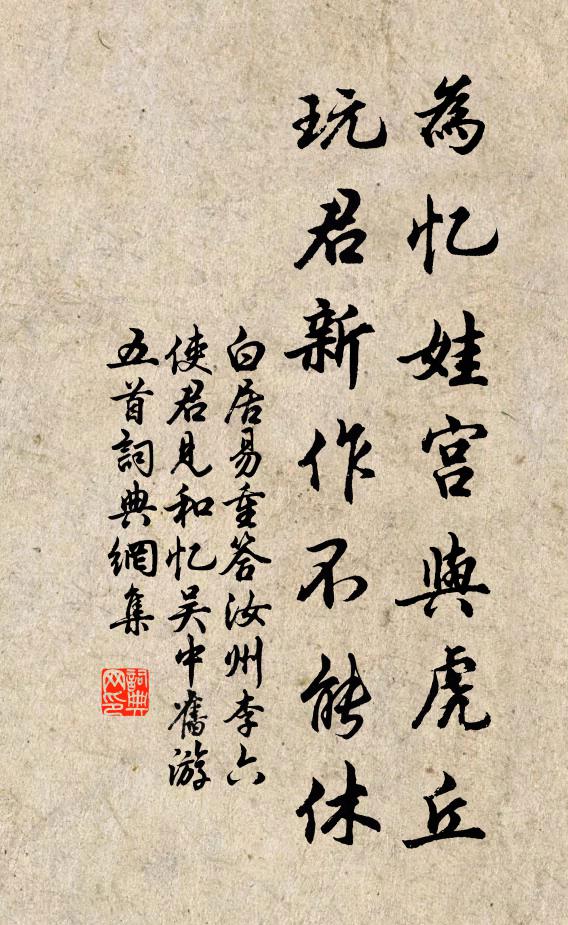 為忆娃宫與虎丘
玩君新作不能休
白居易重答汝州李六
使君見和忆吴中舊游
五首詞典網集
詞典网印